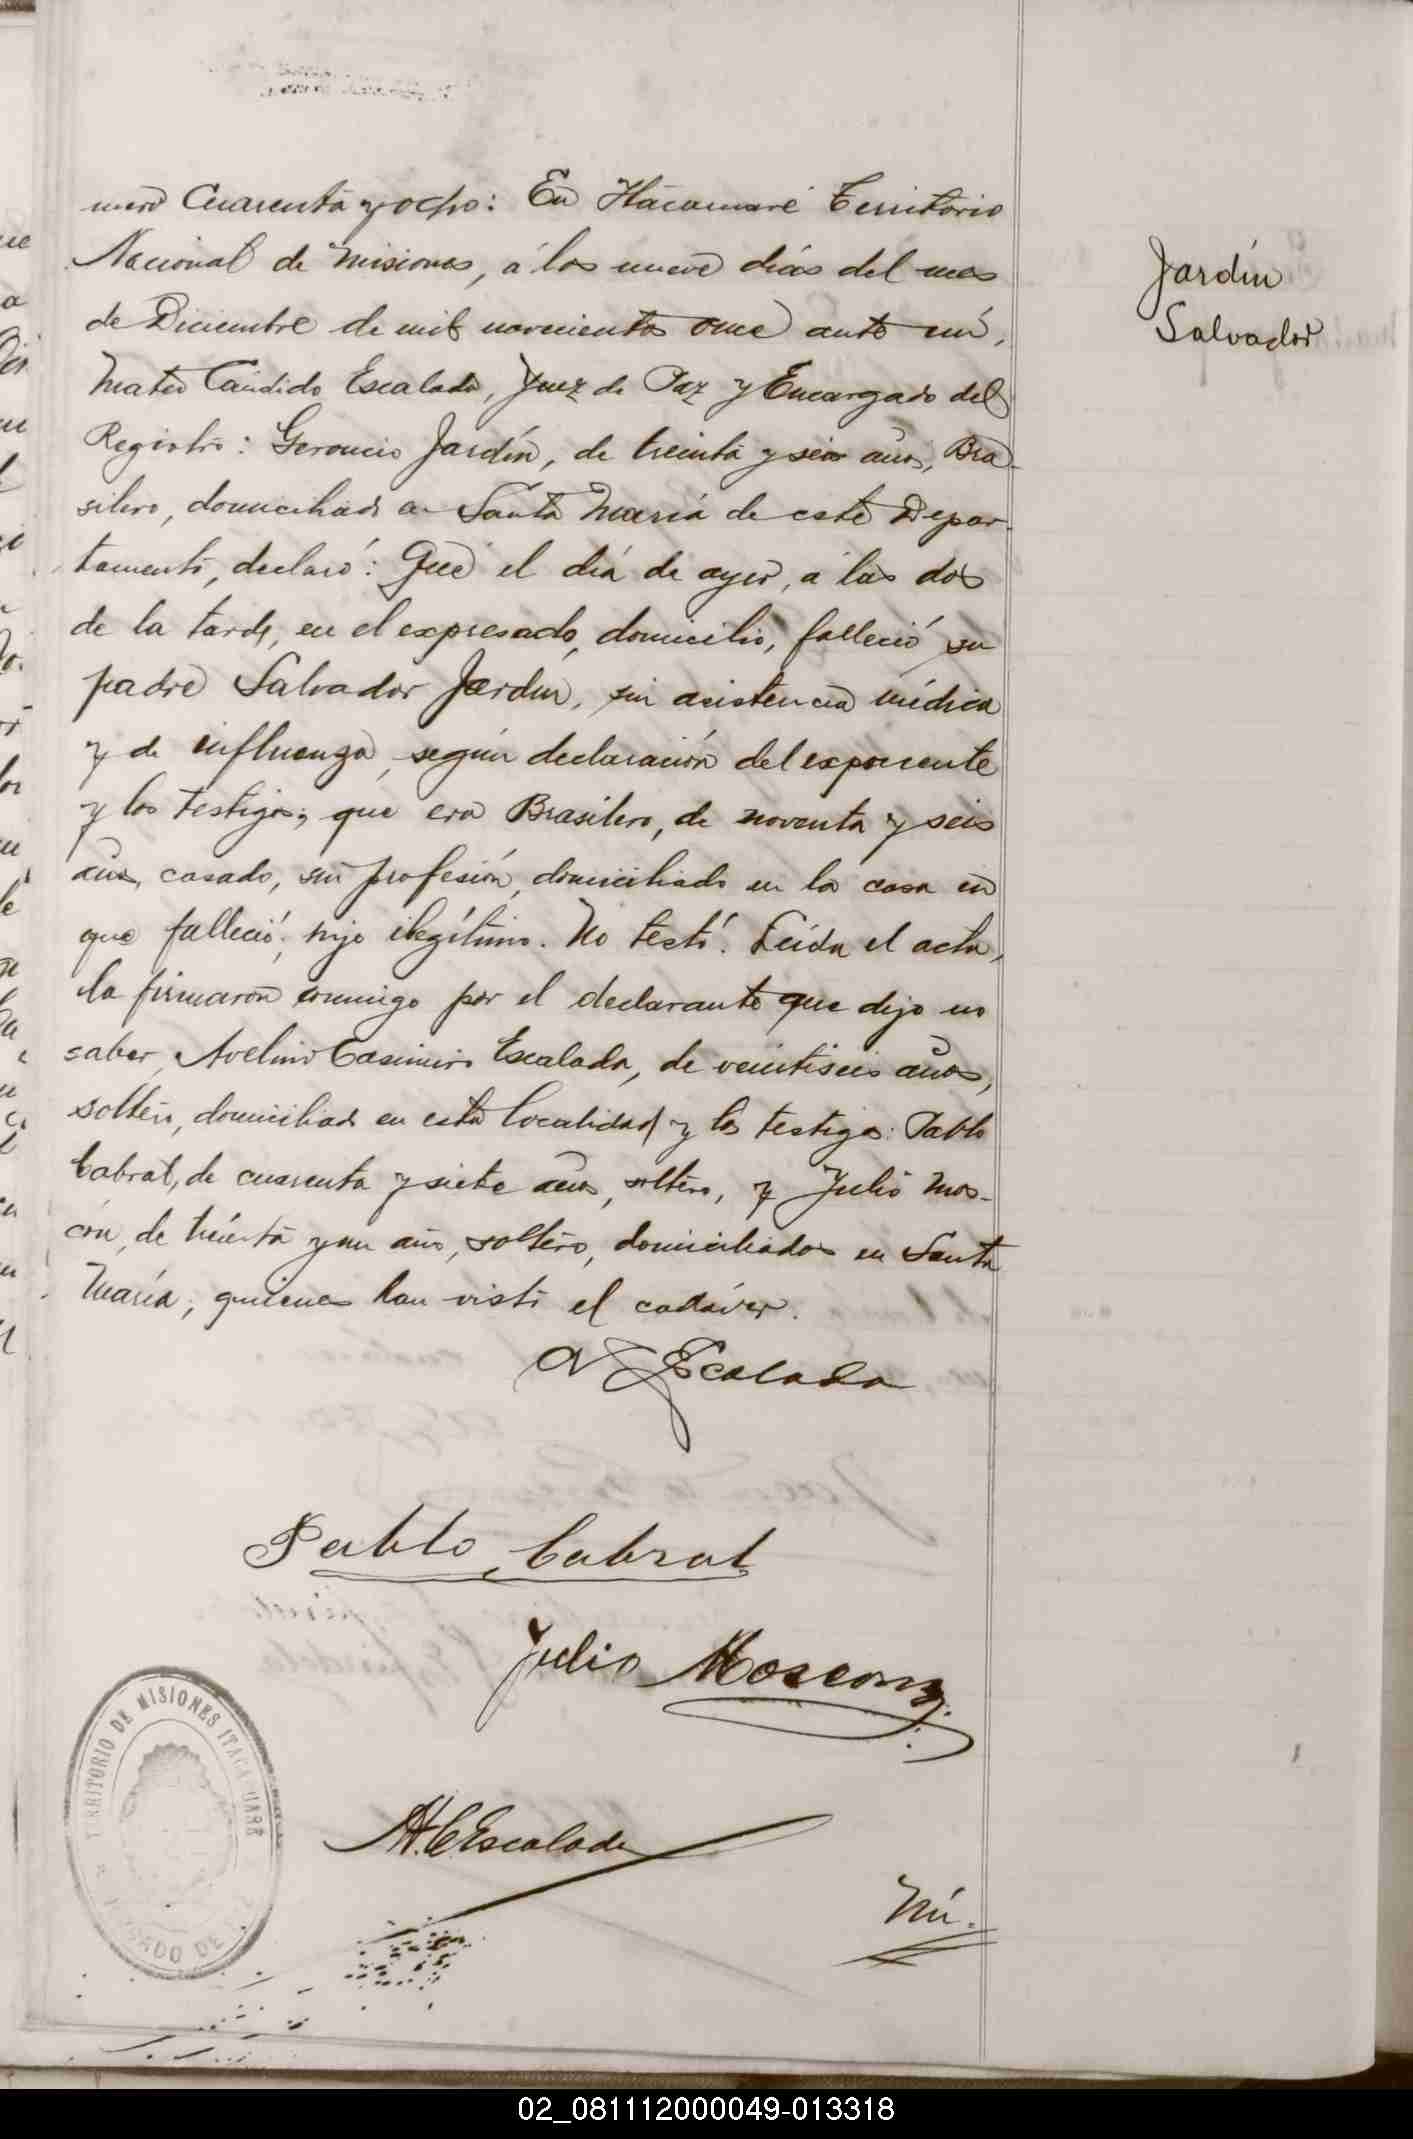 mero Cuarenta y ocho: En Itacaruaré Territorio
Nacional de Misiones, á los nueve días del mes
de Diciembre de mil novecientos once ante mí,
Mateo Cándido Escalada, Juez de Paz y Encargado del
Registro: Geroncio Jardín, de treinta y seis años, Bra-
silero, domiciliado en Santa María de este Depar-
tamento, declaró: Que el día de ayer, a las dos
de la tarde, en el expresado domicilio, falleció su
padre Salvador Jardín, sin asistencia médica
y de influenza, según declaración del exponente
y los testigos; que era Brasilero, de noventa y seis
años, casado, sin profesión, domiciliado en la casa en
que falleció; hijo ilegítimo. No testó. Leída el acta,
la firmaron conmigo por el declarante que dijo no
saber, Avelino Casimiro Escalada, de veintiseis años,
soltero, domiciliado en esta localidad y los testigos: Pablo
Cabral, de cuarenta y siete años, soltero, y Julio Mos-
con, de treinta y un año, soltero, domiciliados en Santa
María; quienes han visto el cadáver.
Escalada
Pablo Cabral
Julio Moscon
M. C. Escalada
Nú-
Jardín
Salvador
TERRITORIO DE MISIONES ITACARUARÉ
JUZGADO DE PAZ
02_081112000049-013318